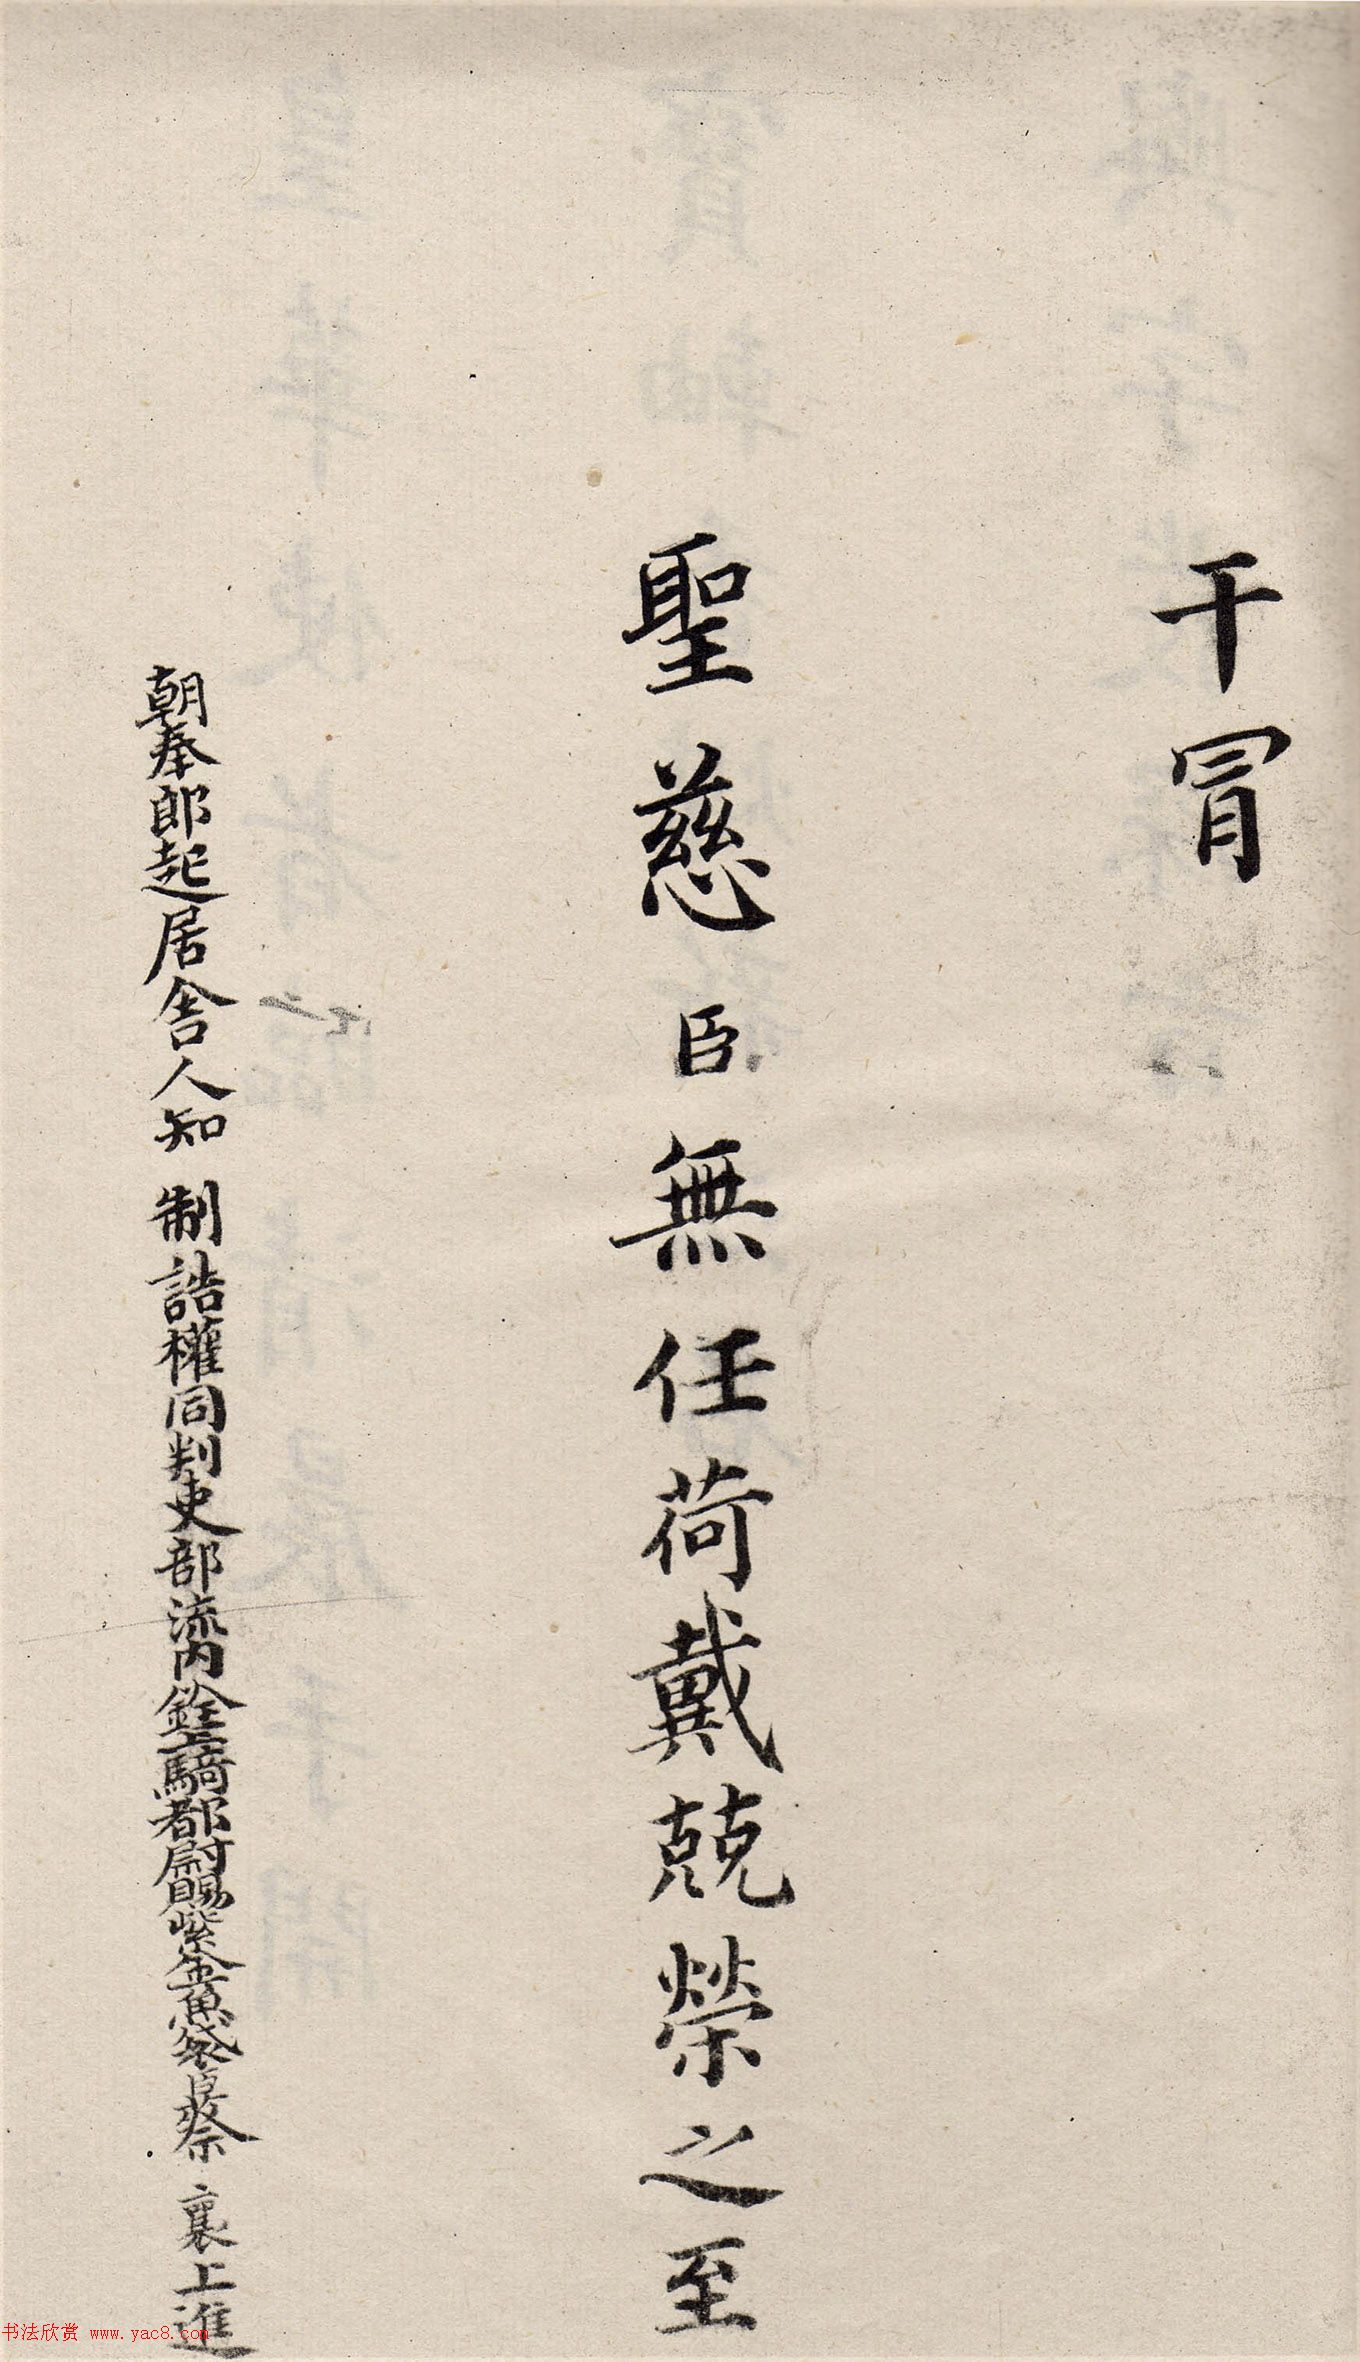 干冒
聖慈臣無任荷戴兢榮之至
朝奉郎起居舍人知 制誥權同判吏部流內銓上騎都尉賜紫金魚袋臣蔡襄上進
书法欣赏 www.yac8.com